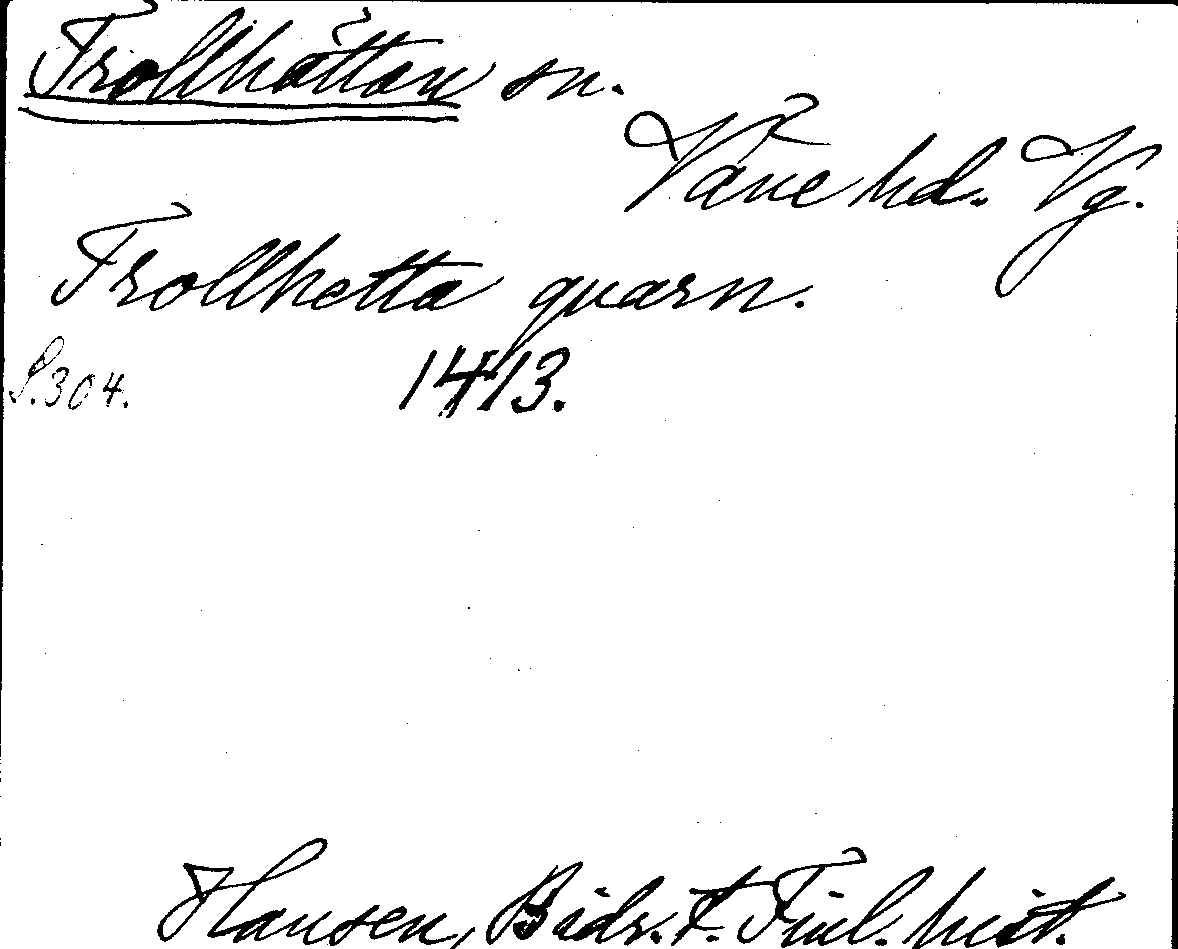 Trollhättan sn.
Väne hd. Vg.
Trollhetta qvarn.
S. 304. 1413.
Hausen, Bidr. t. Finl. hist.